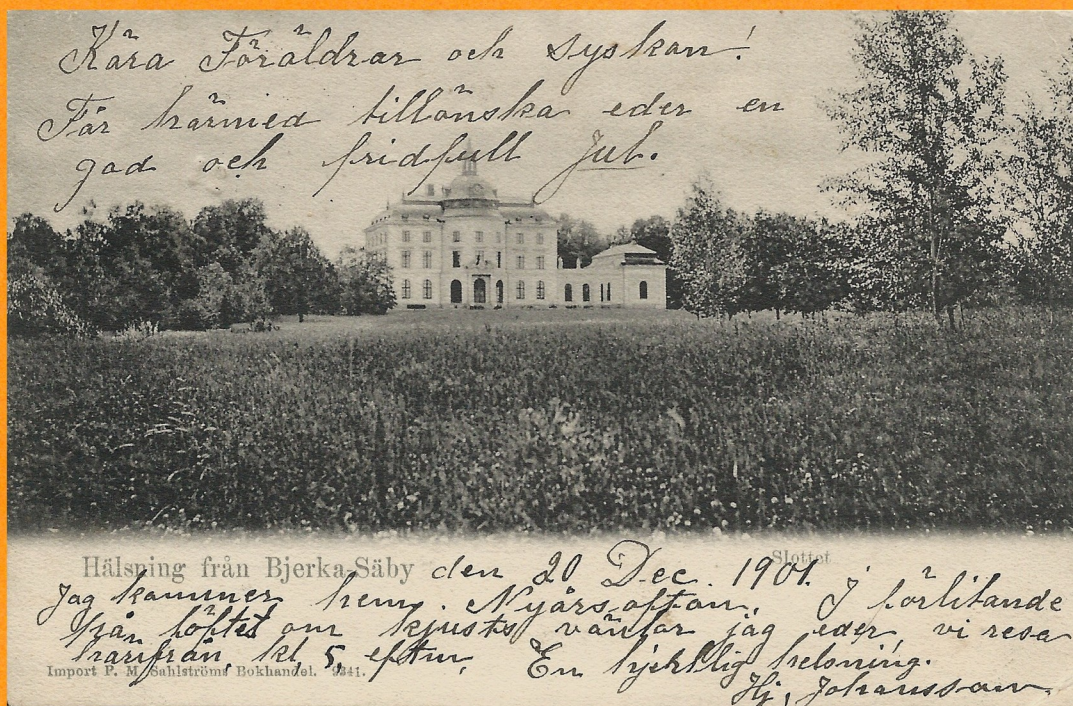 Kära Föräldrar och syskon!
Får härmed tillönska eder en
god och fridfull Jul.
Hälsning från Bjerka-Säby
Slottet
den 20 Dec. 1901.
Jag kommer hem. Nyårsafton. I förlitande
på löftet om kjusts väntar jag eder, vi resa
härifrån, kl, 5, eftm, En hjertlig helsning.
Import P. M. Sahlströms Bokhandel. 2341.
Hj, Johansson.